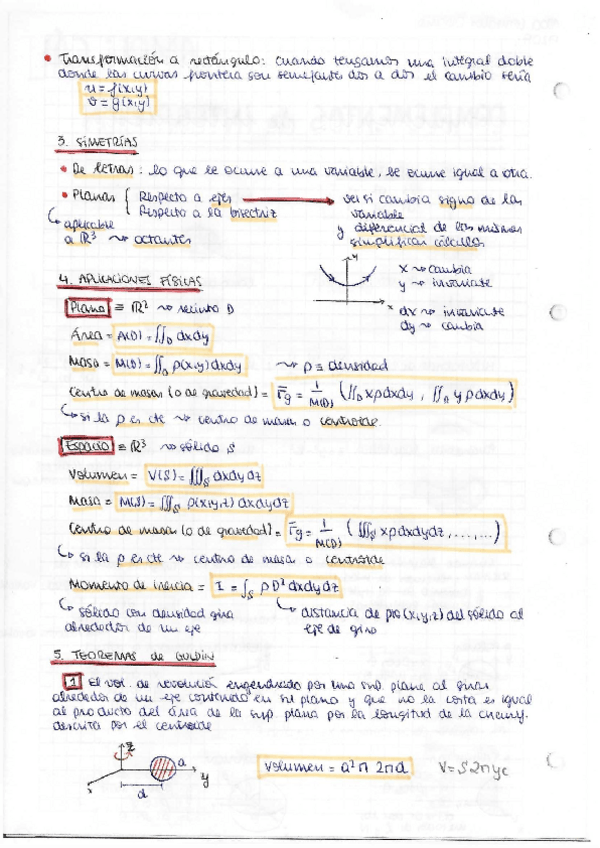 • Transformación a rectángulo: cuando tengamos una integral doble
donde las curvas frontera son semejantes dos a dos el cambio sería
u = f(x,y)
v = g(x,y)
3. SIMETRÍAS
• De letras: lo que le ocurre a una variable, le ocurre igual a otra.
• Planas { Respecto a ejes → ver si cambia signo de las
Respecto a la bisectriz variable
aplicable y diferencial de las mismas
a ℝ³ ⇝ octantes simplificar cálculos
4. APLICACIONES FÍSICAS
y
x
x ⇝ cambia
y ⇝ invariante
dx ⇝ invariante
dy ⇝ cambia
Plano ≡ ℝ² ⇝ recinto D
Área = A(D) = ∬_D dxdy
Masa = M(D) = ∬_D ρ(x,y) dxdy ⇝ ρ ≡ densidad
Centro de masas (o de gravedad) = r̄g = 1/M(D) (∬_D xρdxdy , ∬_D yρdxdy)
si la ρ es cte ⇝ centro de masas o centroide.
Espacio ≡ ℝ³ ⇝ sólido S
Volumen = V(S) = ∭_S dxdydz
Masa = M(S) = ∭_S ρ(x,y,z) dxdydz
Centro de masas (o de gravedad) = r̄g = 1/M(D) (∭_S xρdxdydz, ......, ...)
si la ρ es cte ⇝ centro de masas o centroide
Momento de inercia = I = ∫_S ρD² dxdydz
sólido con densidad gira distancia de pto (x,y,z) del sólido al
alrededor de un eje eje de giro
5. TEOREMAS DE GULDIN
1 El vol. de revolución engendrado por una sup. plana al girar
alrededor de un eje contenido en su plano y que no la corta es igual
al producto del área de la sup. plana por la longitud de la circunf.
descrita por el centroide
z
a
y
x
d
Volumen = a²π 2πd V = S 2π yc